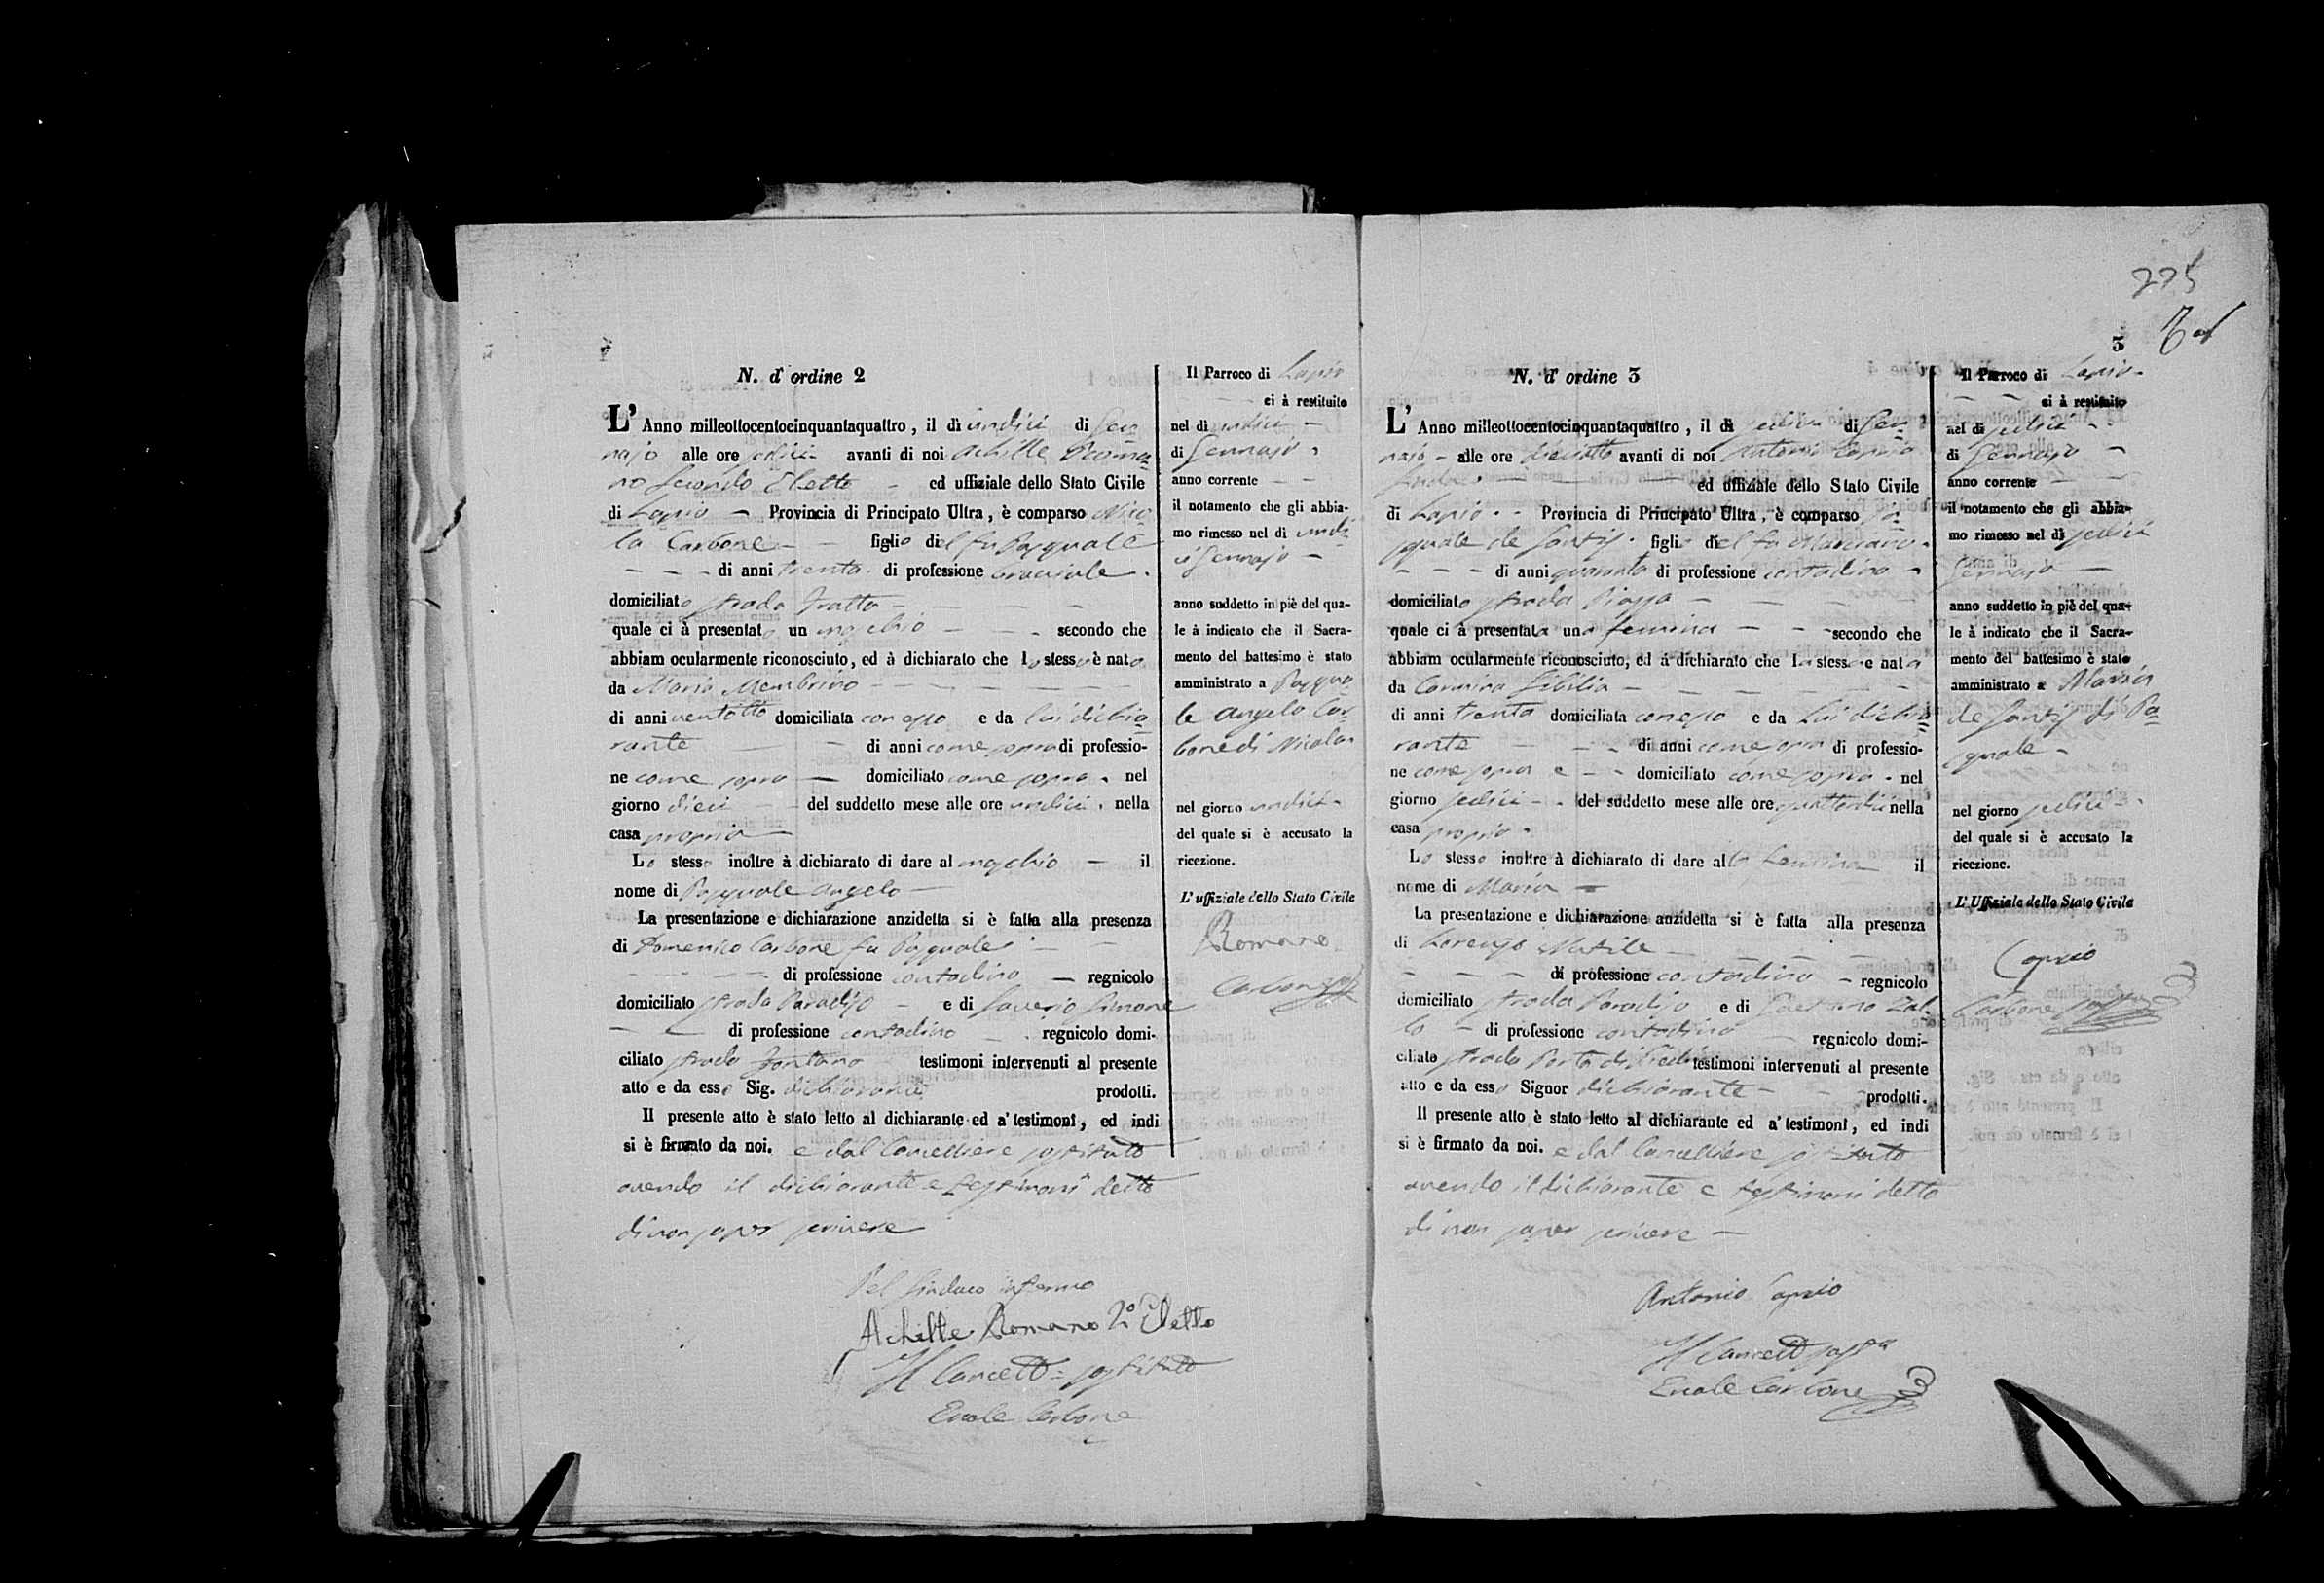 225
3
N. d' ordine 2
L' Anno millottocentocinquantaquattro, il dì undici di Gen=
najo alle ore sedici avanti di noi Achille Roma=
no Secondo Eletto ed uffiziale dello Stato Civile
di Lapio — Provincia di Principato Ultra, è comparso Nico=
la Carbone — figlio del fu Pasquale
di anni trenta di professione bracciale.
domiciliato strada Fratta
quale ci à presentato un maschio secondo che
abbiam ocularmente riconosciuto, ed à dichiarato che lo stesso è nato
da Maria Membrino
di anni ventotto domiciliata con esso e da lui dichia=
rante di anni come sopra di professio-
ne come sopra — domiciliato come sopra. nel
giorno dieci del suddetto mese alle ore undici. nella
casa propria
Lo stesso inoltre à dichiarato di dare al maschio — il
nome di Pasquale Angelo
La presentazione e dichiarazione anzidetta si è fatta alla presenza
di Domenico Carbone fu Pasquale
di professione contadino — regnicolo
domiciliato strada Paradiso e di Saverio Simone
di professione contadino regnicolo domi-
ciliato strada Fontana testimoni intervenuti al presente
atto e da esso Sig. dichiarante prodotti.
Il presente atto è stato letto al dichiarante ed a' testimonî, ed indi
si è firmato da noi. e dal Cancelliere sostituto
avendo il dichiarante e testimoni detto
di non saper scrivere
Pel Sindaco infermo
Achille Romano 2º Eletto
Il Cancell= sostituto
Carbone
Il Parroco di Lapio
ci à restituito
nel dì undici
di Gennajo
anno corrente
il notamento che gli abbia-
mo rimesso nel dì undi=
ci Gennajo
anno suddetto in piè del qua-
le à indicato che il Sacra-
mento del battesimo è stato
amministrato a Pasqua=
le Angelo Car=
bone di Nicola
nel giorno undici
del quale si è accusato la
ricezione.
L' uffiziale dello Stato Civile
Romano
Carbone
N. d' ordine 3
L' Anno milleottocentocinquantaquattro, il dì sedici di Gen=
najo — alle ore dieciotto avanti di noi Antonio Caprio
Sindaco ed uffiziale dello Stato Civile
di Lapio. Provincia di Principato Ultra, è comparso Pa=
squale de Santis figlio del fu Marciano
di anni quaranta di professione contadino
domiciliato strada Piazza
quale ci à presentata una femina secondo che
abbiam ocularmente riconosciuto, ed à dichiarato che la stessa e nata
da Carmina Sibilia
di anni trenta domiciliata con esso e da lui dichia=
rante di anni come sopra di professio-
ne come sopra e domiciliato come sopra. nel
giorno sedici del suddetto mese alle ore quattordici nella
casa propria.
Lo stesso inoltre à dichiarato di dare alla femina il
nome di Maria
La presentazione e dichiarazione anzidetta si è fatta alla presenza
di Lorenzo
di professione contadino — regnicolo
domiciliato strada Paradiso e di Gaetano
di professione contadino regnicolo domi-
ciliato strada Porta di testimoni intervenuti al presente
atto e da esso Signor dichiarante prodotti.
Il presente atto è stato letto al dichiarante ed a' testimonî, ed indi
si è firmato da noi. e dal Cancelliere sostituto
avendo il dichiarante e testimoni detto
di non saper scrivere
Antonio Caprio
Il Cancell sostº
Carbone
Il Parroco di Lapio
ci à restituito
nel dì sedici
di Gennajo
anno corrente
il notamento che gli abbia-
mo rimesso nel dì sedici
Gennajo
anno suddetto in piè del qua-
le à indicato che il Sacra-
mento del battesimo è stato
amministrato a Maria
de Santis di Pa=
squale
nel giorno sedici
del quale si è accusato la
ricezione.
L' Uffiziale dello Stato Civile
Caprio
Carbone